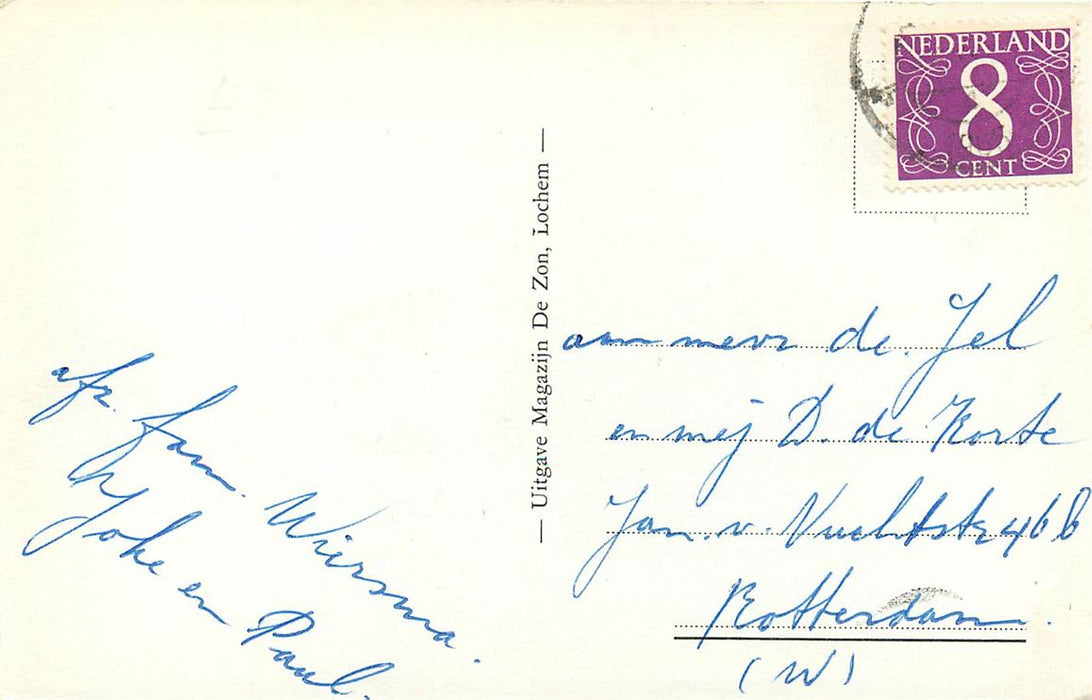 afz. fam. Wiersma.
Joke en Paul.
— Uitgave Magazijn De Zon, Lochem —
NEDERLAND
8
CENT
aan mevr de Jel
en mej D. de Korte
Jan. v. Vuchtstr 46 b
Rotterdam.
(W)